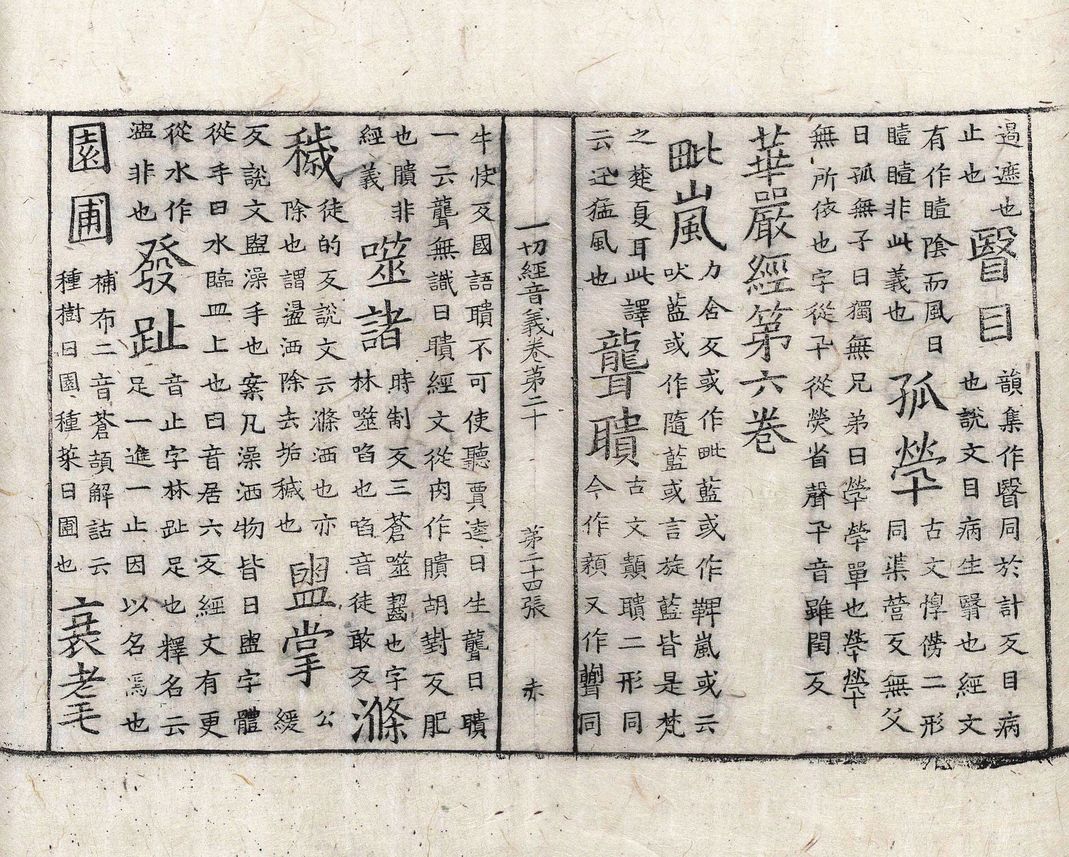 遏遮也止也瞖目韻集作瞖同於計反目病也說文目病生瞖也經文
有作曀陰而風日曀曀非此義也孤煢古文惸㒌二形同渠營反無父
日孤無子日獨無兄弟日煢煢單也煢煢無所依也字從卂從熒省聲卂音雖閏反
華嚴經第六卷
毗嵐力含反或作毗藍或作鞞嵐或云吠藍或作隨藍或言旋藍皆是梵
之楚夏耳此譯云迅猛風也聾聵古文顡聵二形同今作又作同
一切經音義卷第二十 第二十四張 赤
牛快反國語聵不可使聽賈逵曰生聾曰聵一云聾無識曰聵經文從肉作膭胡對反肥
也膭非經義噬諸時制反三蒼噬齧也字林噬啗也啗音徒敢反滌
穢徒的反說文云滌洒也亦除也謂盪洒除去垢穢也盥掌公緩
反說文盥澡手也案凡澡洒物皆曰盥字體從手曰水臨皿上也曰音居六反經文有更
從水作盥非也發趾音止字林趾足也釋名云足一進一止因以名焉也
園圃補布二音蒼頡解詁云種樹曰園種菜曰圃也衰耄